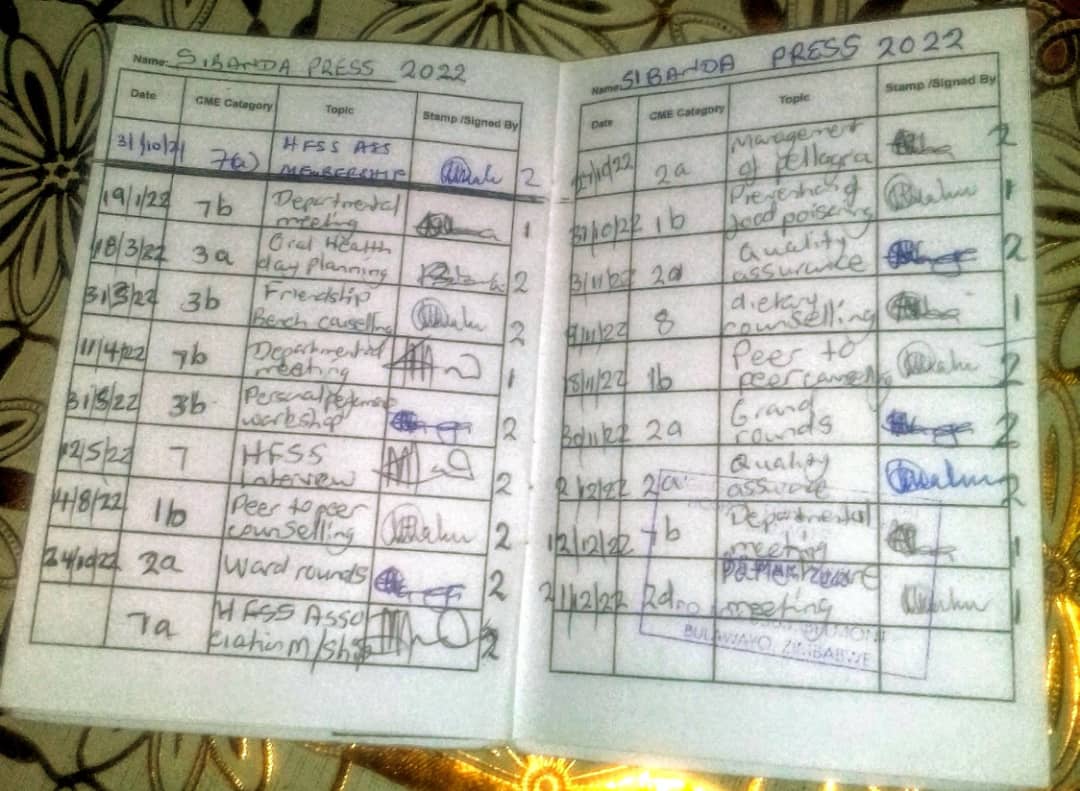 Name: SIBANDA PRESS 2022
Date CME Category Topic Stamp /Signed By
31/10/21 7(a) HFSS ASS
MEMBERSHIP 2
19/1/22 7b Departmental
meeting 1
18/3/22 3a Oral Health
day planning 2
31/3/22 3b Friendship
Bench 2
11/4/22 7b Departmental
meeting 1
31/5/22 3b
workshop 2
12/5/22 7 HFSS
Interview 2
4/8/22 1b Peer to peer
counselling 2
24/10/22 2a Ward rounds 2
7a HFSS Asso
ciation M/Ship 2
Name: SIBANDA PRESS 2022
Date CME Category Topic Stamp /Signed By
27/10/22 2a Management
of pellagra 2
31/10/22 1b Prevention of
food poisoning 1
3/11/22 2a Quality
assurance 2
9/11/22 8 dietary
counselling 1
18/11/22 1b Peer to
peer 2
30/11/22 2a Grand
rounds 2
2/12/22 2a Quality
2
12/12/22 7b Departmental
meeting 1
21/12/22 2d
meeting 1
BULAWAYO, ZIMBABWE